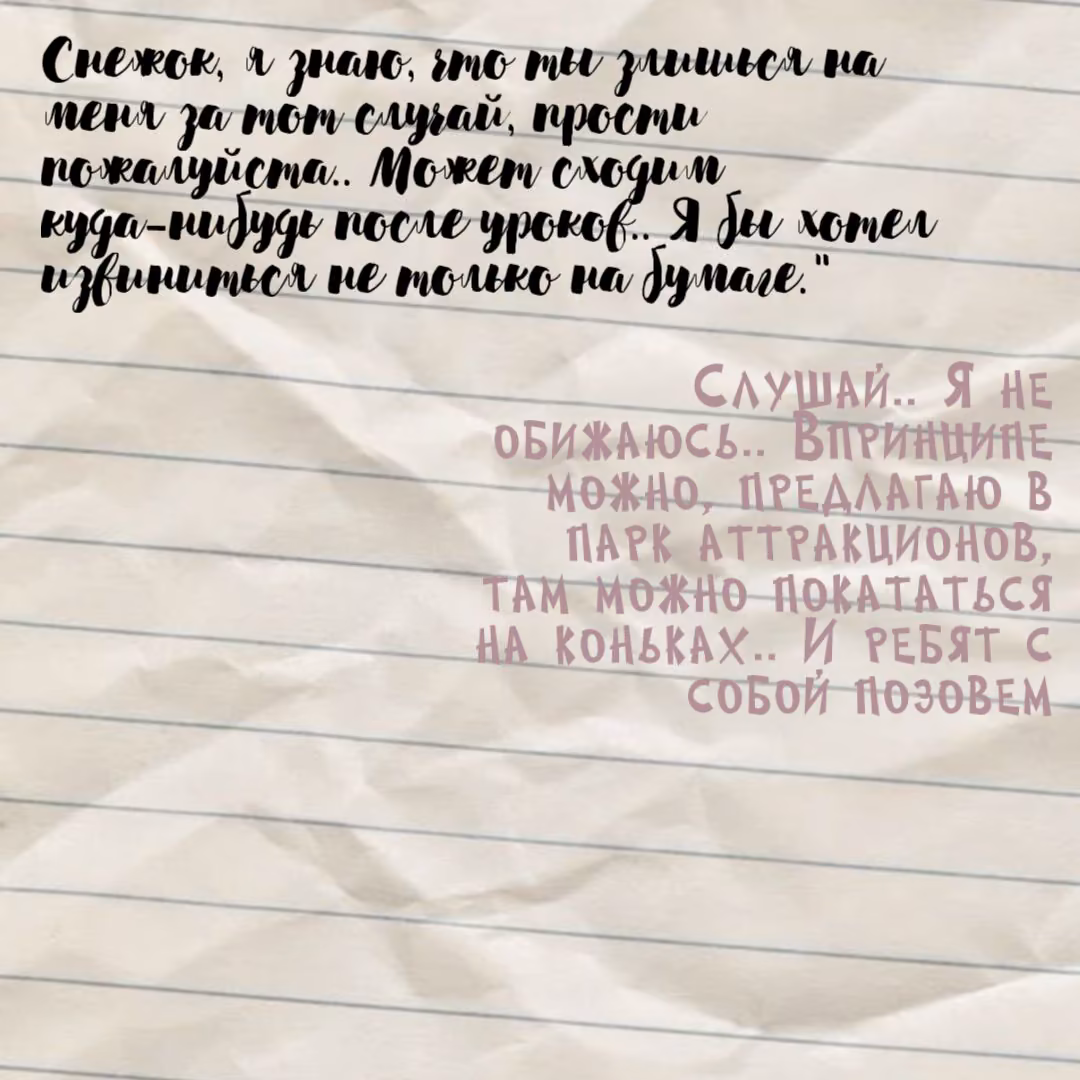 Снежок, я знаю, что ты злишься на
меня за тот случай, прости
пожалуйста.. Может сходим
куда-нибудь после уроков.. Я бы хотел
извиниться не только на бумаге."
Слушай.. Я не
обижаюсь.. Впринципе
можно, предлагаю в
парк аттракционов,
там можно покататься
на коньках.. И ребят с
собой позовем